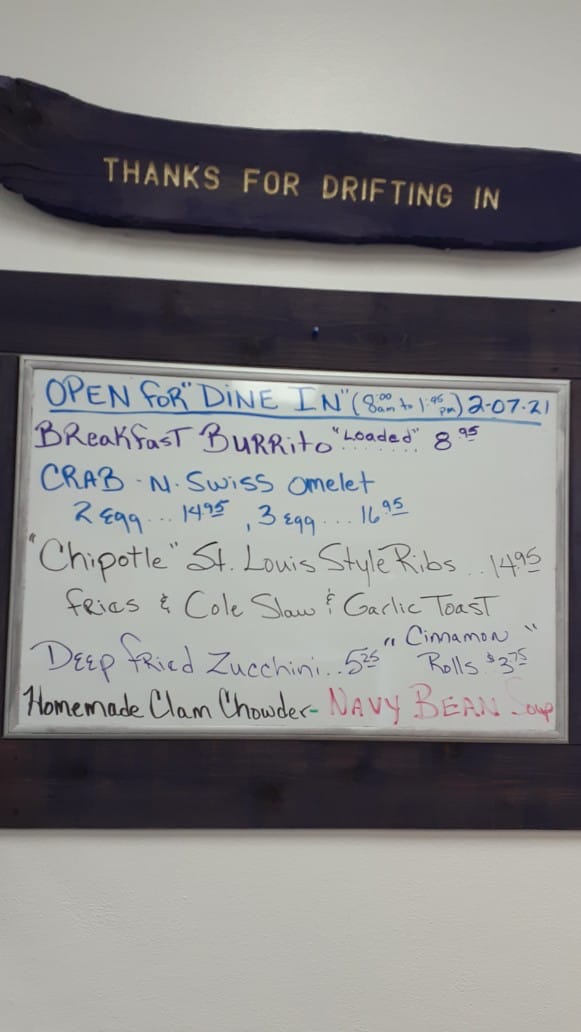 THANKS FOR DRIFTING IN
OPEN FOR "DINE IN" (8:00 am to 1:45 pm) 2-07-21
BREAKFAST BURRITO "Loaded" ........ 8.95
CRAB-N-SWISS omelet
2 Egg... 14.95, 3 Egg... 16.95
"Chipotle" St. Louis Style Ribs.. 14.95
fries & Cole Slaw & Garlic TOAST
DEEP fried Zucchini... 5.25 "Cinnamon"
Rolls $3.75
Homemade Clam Chowder- NAVY BEAN Soup